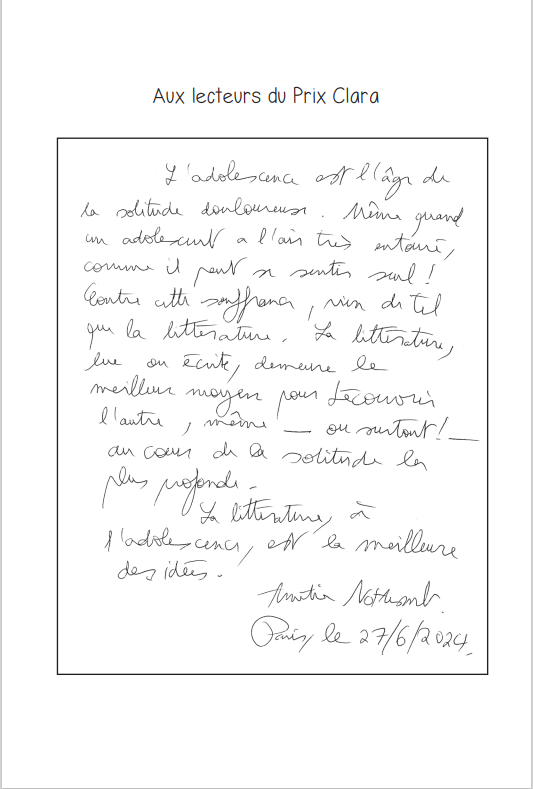 Aux lecteurs du Prix Clara
L'adolescence est l'âge de
la solitude douloureuse. Même quand
un adolescent a l'air très entouré,
comme il peut se sentir seul !
Contre cette souffrance, rien de tel
que la littérature. La littérature,
lue ou écrite, demeure le
meilleur moyen pour découvrir
l'autre, même — ou surtout ! —
au cœur de la solitude la
plus profonde.
La littérature, à
l'adolescence, est la meilleure
des idées.
Amélie Nothomb.
Paris, le 27/6/2024.